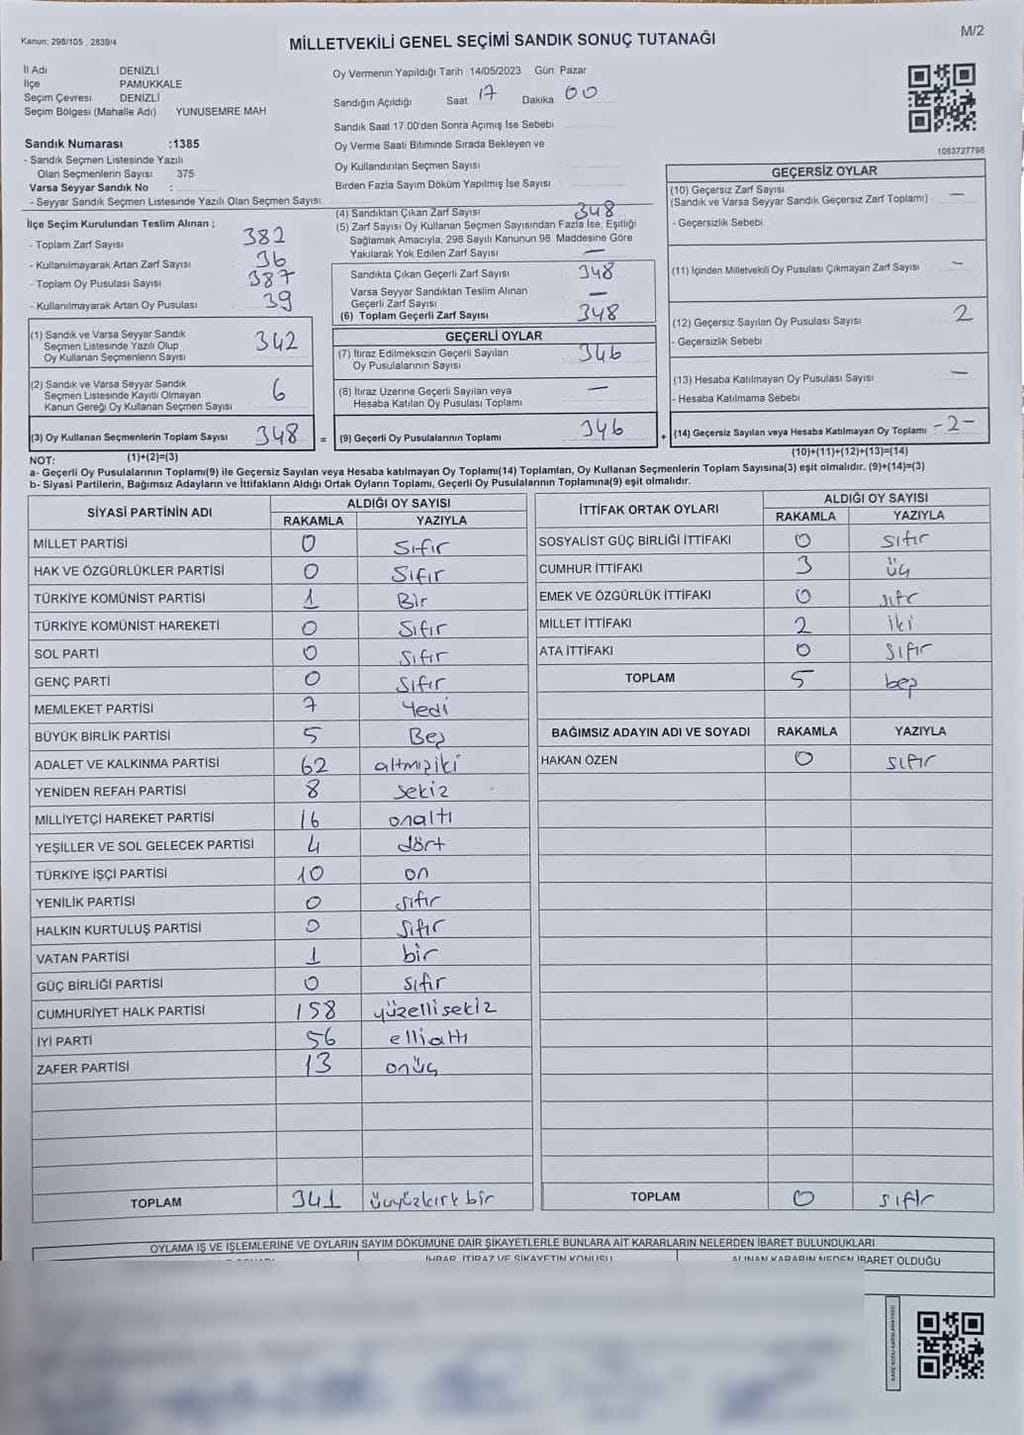 Kanun: 298/105 2839/4
MİLLETVEKİLİ GENEL SEÇİMİ SANDIK SONUÇ TUTANAĞI
M/2
İl Adı DENİZLİ
İlçe PAMUKKALE
Seçim Çevresi DENİZLİ
Seçim Bölgesi (Mahalle Adı) YUNUSEMRE MAH
Sandık Numarası :1385
- Sandık Seçmen Listesinde Yazılı
Olan Seçmenlerin Sayısı 375
Varsa Seyyar Sandık No :
- Seyyar Sandık Seçmen Listesinde Yazılı Olan Seçmen Sayısı
Oy Vermenin Yapıldığı Tarih 14/05/2023 Gün Pazar
Sandığın Açıldığı Saat 17 Dakika 00
Sandık Saat 17.00'den Sonra Açımış İse Sebebi
Oy Verme Saati Bitiminde Sırada Bekleyen ve
Oy Kullandırılan Seçmen Sayısı
Birden Fazla Sayım Döküm Yapılmış İse Sayısı
1083727798
İlçe Seçim Kurulundan Teslim Alınan ;
- Toplam Zarf Sayısı 382
- Kullanılmayarak Artan Zarf Sayısı 36
- Toplam Oy Pusulası Sayısı 387
- Kullanılmayarak Artan Oy Pusulası 39
(1) Sandık ve Varsa Seyyar Sandık
Seçmen Listesinde Yazılı Olup
Oy Kullanan Seçmenlerin Sayısı 342
(2) Sandık ve Varsa Seyyar Sandık
Seçmen Listesinde Kayıtlı Olmayan
Kanun Gereği Oy Kullanan Seçmen Sayısı 6
(3) Oy Kullanan Seçmenlerin Toplam Sayısı 348 =
(1)+(2)=(3)
(4) Sandıktan Çıkan Zarf Sayısı 348
(5) Zarf Sayısı Oy Kullanan Seçmen Sayısından Fazla İse, Eşitliği
Sağlamak Amacıyla, 298 Sayılı Kanunun 98. Maddesine Göre
Yakılarak Yok Edilen Zarf Sayısı —
Sandıkta Çıkan Geçerli Zarf Sayısı 348
Varsa Seyyar Sandıktan Teslim Alınan
Geçerli Zarf Sayısı —
(6) Toplam Geçerli Zarf Sayısı 348
GEÇERLİ OYLAR
(7) İtiraz Edilmeksizin Geçerli Sayılan
Oy Pusulalarının Sayısı 346
(8) İtiraz Üzerine Geçerli Sayılan veya
Hesaba Katılan Oy Pusulası Toplamı —
(9) Geçerli Oy Pusulalarının Toplamı 346 +
GEÇERSİZ OYLAR
(10) Geçersiz Zarf Sayısı —
(Sandık ve Varsa Seyyar Sandık Geçersiz Zarf Toplamı)
- Geçersizlik Sebebi
(11) İçinden Milletvekili Oy Pusulası Çıkmayan Zarf Sayısı —
(12) Geçersiz Sayılan Oy Pusulası Sayısı 2
- Geçersizlik Sebebi
(13) Hesaba Katılmayan Oy Pusulası Sayısı —
- Hesaba Katılmama Sebebi
(14) Geçersiz Sayılan veya Hesaba Katılmayan Oy Toplamı -2-
(10)+(11)+(12)+(13)=(14)
NOT:
a- Geçerli Oy Pusulalarının Toplamı(9) ile Geçersiz Sayılan veya Hesaba katılmayan Oy Toplamı(14) Toplamları, Oy Kullanan Seçmenlerin Toplam Sayısına(3) eşit olmalıdır. (9)+(14)=(3)
b- Siyasi Partilerin, Bağımsız Adayların ve İttifakların Aldığı Ortak Oyların Toplamı, Geçerli Oy Pusulalarının Toplamına(9) eşit olmalıdır.
SİYASİ PARTİNİN ADI ALDIĞI OY SAYISI
RAKAMLA YAZIYLA
MİLLET PARTİSİ 0 Sıfır
HAK VE ÖZGÜRLÜKLER PARTİSİ 0 Sıfır
TÜRKİYE KOMÜNİST PARTİSİ 1 Bir
TÜRKİYE KOMÜNİST HAREKETİ 0 Sıfır
SOL PARTİ 0 Sıfır
GENÇ PARTİ 0 Sıfır
MEMLEKET PARTİSİ 7 Yedi
BÜYÜK BİRLİK PARTİSİ 5 Beş
ADALET VE KALKINMA PARTİSİ 62 altmışiki
YENİDEN REFAH PARTİSİ 8 sekiz
MİLLİYETÇİ HAREKET PARTİSİ 16 onaltı
YEŞİLLER VE SOL GELECEK PARTİSİ 4 dört
TÜRKİYE İŞÇİ PARTİSİ 10 on
YENİLİK PARTİSİ 0 sıfır
HALKIN KURTULUŞ PARTİSİ 0 sıfır
VATAN PARTİSİ 1 bir
GÜÇ BİRLİĞİ PARTİSİ 0 sıfır
CUMHURİYET HALK PARTİSİ 158 yüzellisekiz
İYİ PARTİ 56 ellialtı
ZAFER PARTİSİ 13 onüç
TOPLAM 341 üçyüzkırkbir
İTTİFAK ORTAK OYLARI ALDIĞI OY SAYISI
RAKAMLA YAZIYLA
SOSYALİST GÜÇ BİRLİĞİ İTTİFAKI 0 sıfır
CUMHUR İTTİFAKI 3 üç
EMEK VE ÖZGÜRLÜK İTTİFAKI 0 sıfr
MİLLET İTTİFAKI 2 iki
ATA İTTİFAKI 0 sıfır
TOPLAM 5 beş
BAĞIMSIZ ADAYIN ADI VE SOYADI RAKAMLA YAZIYLA
HAKAN ÖZEN 0 sıfır
TOPLAM 0 sıfır
OYLAMA İŞ VE İŞLEMLERİNE VE OYLARIN SAYIM DÖKÜMÜNE DAİR ŞİKAYETLERLE BUNLARA AİT KARARLARIN NELERDEN İBARET BULUNDUKLARI
İHBAR, İTİRAZ VE ŞİKAYETİN KONUSU
ALINAN KARARIN NEDEN İBARET OLDUĞU